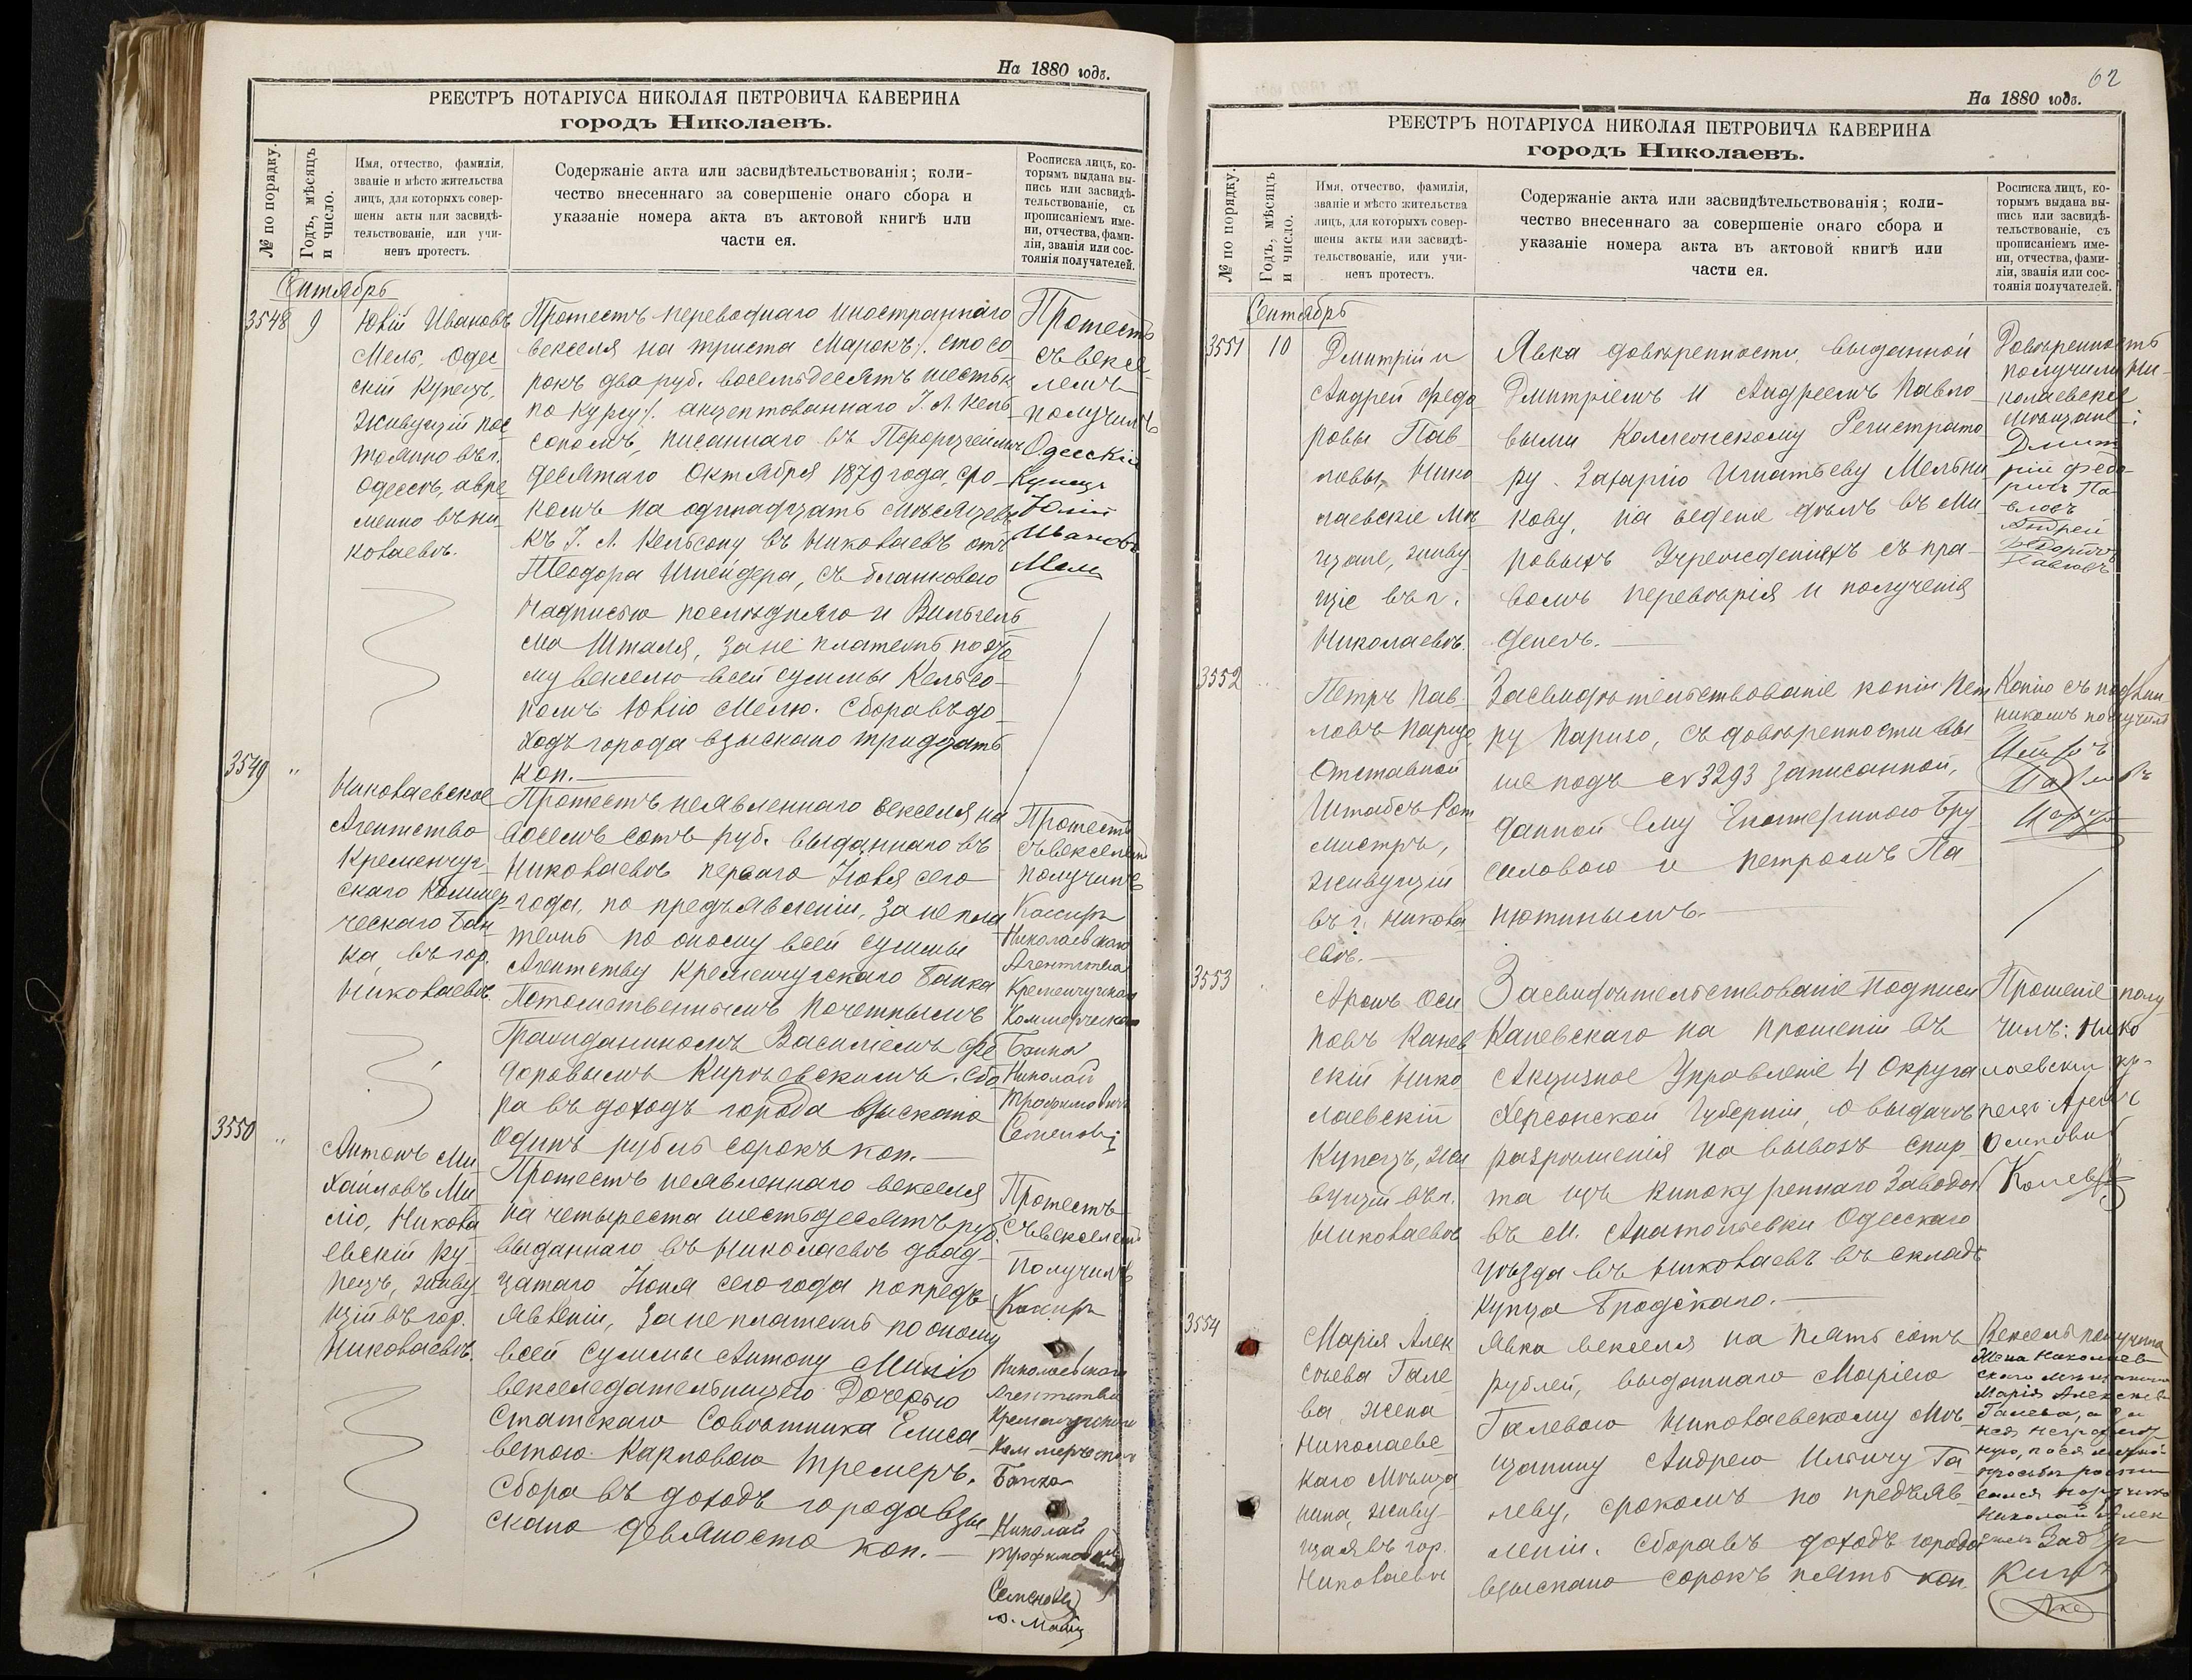 На 1880 годъ.
РЕЕСТРЪ НОТАРІУСА НИКОЛАЯ ПЕТРОВИЧА КАВЕРИНА
городъ Николаевъ.
№ по порядку.
Годъ, мѣсяцъ
и число.
Имя, отчество, фамилія,
званіе и мѣсто жительства
лицъ, для которыхъ совер-
шены акты или засвидѣ-
тельствованіе, или учи-
ненъ протестъ.
Содержаніе акта или засвидѣтельствованія; коли-
чество внесеннаго за совершеніе онаго сбора и
указаніе номера акта въ актовой книгѣ или
части ея.
Росписка лицъ, ко-
торымъ выдана вы-
пись или засвидѣ-
тельствованіе, съ
прописаніемъ име-
ни, отчества, фами-
ліи, званія или сос-
тоянія получателей.
Сентябрь
3548
9
Юлій Ивановъ
Мель, Одес
скій Купецъ,
живущій пос
тоянно въ г.
Одессѣ, а вре
менно въ Ни
колаевѣ.
Протестъ переводнаго иностраннаго
векселя на триста Марокъ /. сто со
рокъ два руб. восемьдесятъ шесть к
по курсу /. акцептованнаго І. Л. Кель
сономъ, писаннаго въ
десятаго Октября 1879 года, сро-
комъ на одинадцать мѣсяцевъ
къ І. Л. Кельсону въ Николаевъ отъ
Теодора Шнейдера, съ бланковою
надписью послѣдняго и Вильгель
ма Шталя, за не платежъ по это
му векселю всей суммы Кельсо-
номъ Юлію Мелю. Сбора въ до-
ходъ города взыскано тридцать
коп.
Протестъ
съ вексе
лемъ
получилъ
Одесскій
Купецъ
Юлій
Ивановъ
Мель
3549
"
Николаевское
Агентство
Кременчуг-
скаго Коммер
ческаго Бан
ка, въ гор.
Николаевѣ.
Протестъ неявленнаго векселя на
восемь сотъ руб. выданнаго въ
Николаевѣ перваго Іюля сего
года, по предъявленіи, за не пла
тежъ по оному всей суммы
Агентству Кременчугскаго Банка
Потомственнымъ Почетнымъ
Гражданиномъ Василіемъ Фе
доровымъ Кирѣевскимъ. Сбо
ра въ доходъ города взыскано
Одинъ рубль сорокъ коп.
Протестъ
съ векселемъ
получилъ
Кассиръ
Николаевскаго
Агентства
Кременчугскаго
Коммерческаго
Банка
Николай
Трофимовичъ
Семеновъ
3550
"
Антонъ Ми
хайловъ Ми
ліо, Никола
евскій ку-
пецъ, живу
щій въ гор.
Николаевѣ.
Протестъ неявленнаго векселя
на четыреста шестьдесятъ руб.
выданнаго въ Николаевѣ двад-
цатаго Іюня сего года по предъ
явленіи, за не платежъ по оному
всей суммы Антону Миліо
векселедательницею Дочерью
Статскаго Совѣтника Елиса
ветою Карловою Тремеръ.
Сбора въ доходъ города взы
скано девяносто коп.
Протестъ
съ векселемъ
Получилъ
Кассиръ
Николаевскаго
Агентства
Кременчугскаго
Коммерческаго
Банка
Николай
Трофимовичъ
Семеновъ
62
На 1880 годъ.
РЕЕСТРЪ НОТАРІУСА НИКОЛАЯ ПЕТРОВИЧА КАВЕРИНА
городъ Николаевъ.
№ по порядку.
Годъ, мѣсяцъ
и число.
Имя, отчество, фамилія,
званіе и мѣсто жительства
лицъ, для которыхъ совер-
шены акты или засвидѣ-
тельствованіе, или учи-
ненъ протестъ.
Содержаніе акта или засвидѣтельствованія; коли-
чество внесеннаго за совершеніе онаго сбора и
указаніе номера акта въ актовой книгѣ или
части ея.
Росписка лицъ, ко-
торымъ выдана вы-
пись или засвидѣ-
тельствованіе, съ
прописаніемъ име-
ни, отчества, фами-
ліи, званія или сос-
тоянія получателей.
Сентябрь
3551
10
Дмитрій и
Андрей Федо
ровы Пав
ловы, Нико
лаевскіе Мѣ
щане, живу
щіе въ г.
Николаевѣ.
Явка довѣренности, выданной
Дмитріемъ и Андреемъ Павло-
выми Коллежскому Регистрато
ру Захарію Игнатьеву Мельни
кову, на веденіе дѣлъ въ Ми
ровыхъ Учрежденіяхъ съ пра-
вомъ перевѣрія и полученія
денегъ.
Довѣренность
получили Ни-
колаевскіе
мѣщане:
Дмит
рій Федо-
ровъ Па-
вловъ
Андрей
Федоровъ
Павловъ
3552
Петръ Пав
ловъ Париго
Отставной
Штабсъ Рот
мистръ,
живущій
въ г. Никола
евѣ.
Засвидѣтельствованіе копіи Пет
ру Париго, съ довѣренности вы
ше подъ № 3293 записанной,
данной ему Екатериною Бру
силовою и Петромъ Па
нютинымъ.
Копію съ подлин
никомъ получилъ
Петръ
Павловъ
Париго
3553
Аронъ Оси
повъ Канев
скій Нико
лаевскій
Купецъ, жи
вущій въ г.
Николаевѣ
Засвидѣтельствованіе подписи
Каневскаго на прошеніи въ
Акцизное Управленіе 4 Округа
Херсонской Губерніи, о выдачѣ
разрѣшенія на вывозъ спир
та изъ винокуреннаго завода
въ М. Анатольевки Одесскаго
уѣзда въ Николаевъ въ складъ
купца Бродскаго.
Прошеніе полу
чилъ: Нико
лаевскій ку-
пецъ Аронъ
Осиповъ
Каневскій
3554
Марія Алек
сѣева Гале
ва, жена
Николаевс
каго Мѣща
нина, живу-
щая въ гор.
Николаевѣ
Явка векселя на пять сотъ
рублей, выданнаго Маріею
Галевою Николаевскому Мѣ-
щанину Андрею Ильичу Га
леву, срокомъ по предъяв-
леніи. Сбора въ доходъ города
взыскано сорокъ пять коп.
Вексель получила
Жена Николаев
скаго мѣщанина
Марія Алексѣева
Галева, а за
нея неграмот
ную, по ея личной
просьбѣ роспи
сался
Николай Алек